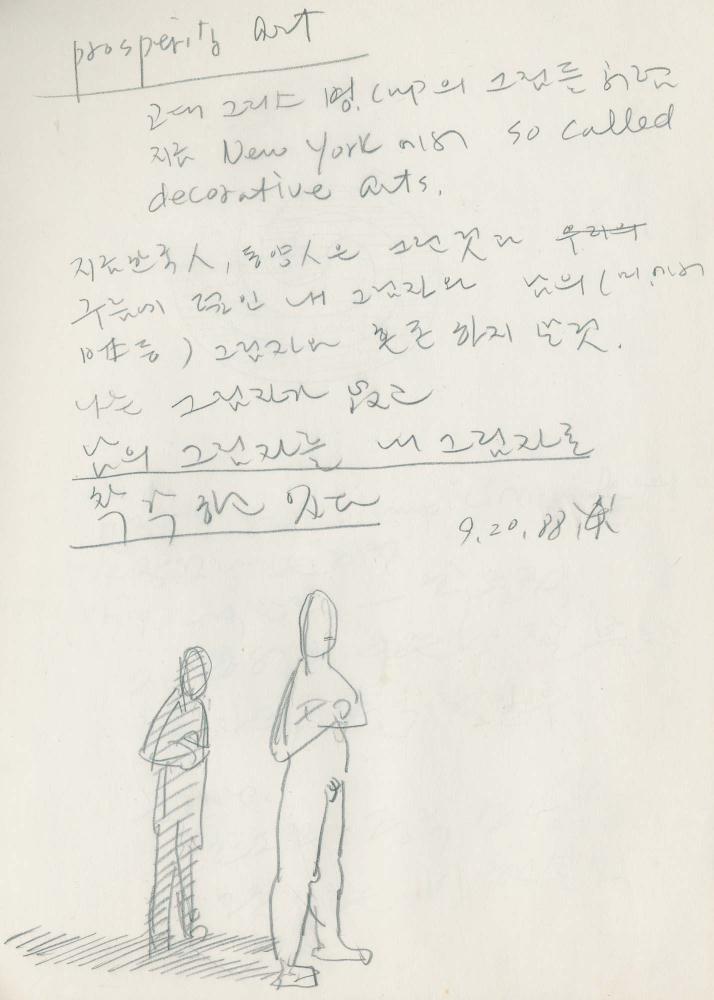 prosperity art
고대 그리스 병, cup의 그림들 하고
지금 New York 에서 so called
decorative arts.
지금 한국人, 동양人은 그런 것과
구름에 내 그림자와 남의 (
) 그림자와 혼존 하지 는 것.
나는 그림자가 없고
남의 그림자를 내 그림자로
착각 하고 있다
9.20.88